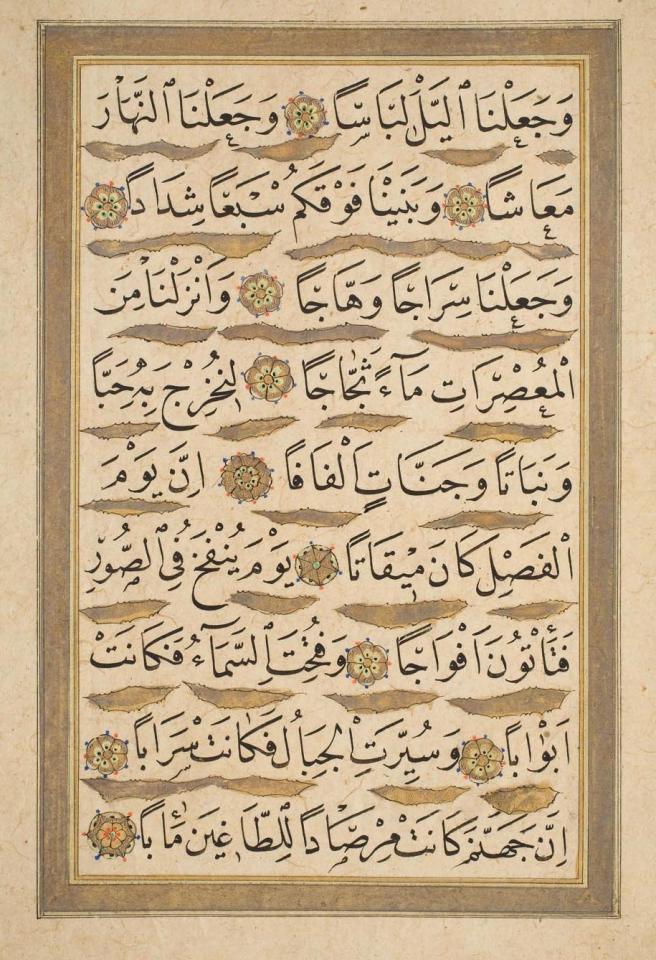 وَجَعَلْنَا ٱلَّيْلَ لِبَاسًا وَجَعَلْنَا ٱلنَّهَارَ
مَعَاشًا وَبَنَيْنَا فَوْقَكُمْ سَبْعًا شِدَادًا
وَجَعَلْنَا سِرَاجًا وَهَّاجًا وَاَنْزَلْنَا مِنَ
الْمُعْصِرَاتِ مَآءً ثَجَّاجًا لِنُخْرِجَ بِهِ حَبًّا
وَنَبَاتًا وَجَنَّاتٍ اَلْفَافًا اِنَّ يَوْمَ
الْفَصْلِ كَانَ مِيْقَاتًا يَوْمَ يُنْفَخُ فِي ٱلصُّورِ
فَتَأْتُونَ اَفْوَاجًا وَفُتِحَتِ ٱلسَّمَآءُ فَكَانَتْ
اَبْوَابًا وَسُيِّرَتِ ٱلْجِبَالُ فَكَانَتْ سَرَابًا
اِنَّ جَهَنَّمَ كَانَتْ مِرْصَادًا لِلطَّاغِينَ مَاٰبًا